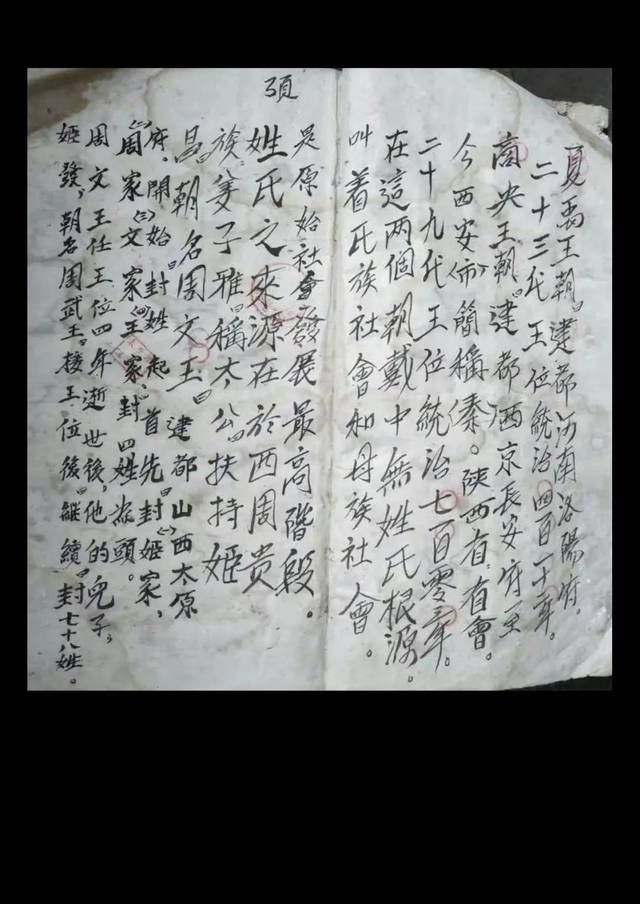 夏禹王朝建都河南洛陽府，
二十三代王位統治四百二十二年。
商央王朝建都西京長安府至
今西安市簡稱秦。陝西有省會。
二十九代王位統治七百零三年。
在這两個朝戴中無姓氏根源。
叫着氏族社會知母族社會。
頊
是原始社會發展最高階段。
姓氏之來源在於西周贵
族姜子雅稱太公扶持姬
昌朝名周文王建都山西太原
府，開始封姓起首先封姬家，
周家文家王家封四姓為頭。
周文王任王位四年逝世後，他的兒子，
姬發，朝名周武王接王位後繼續封七十八姓。